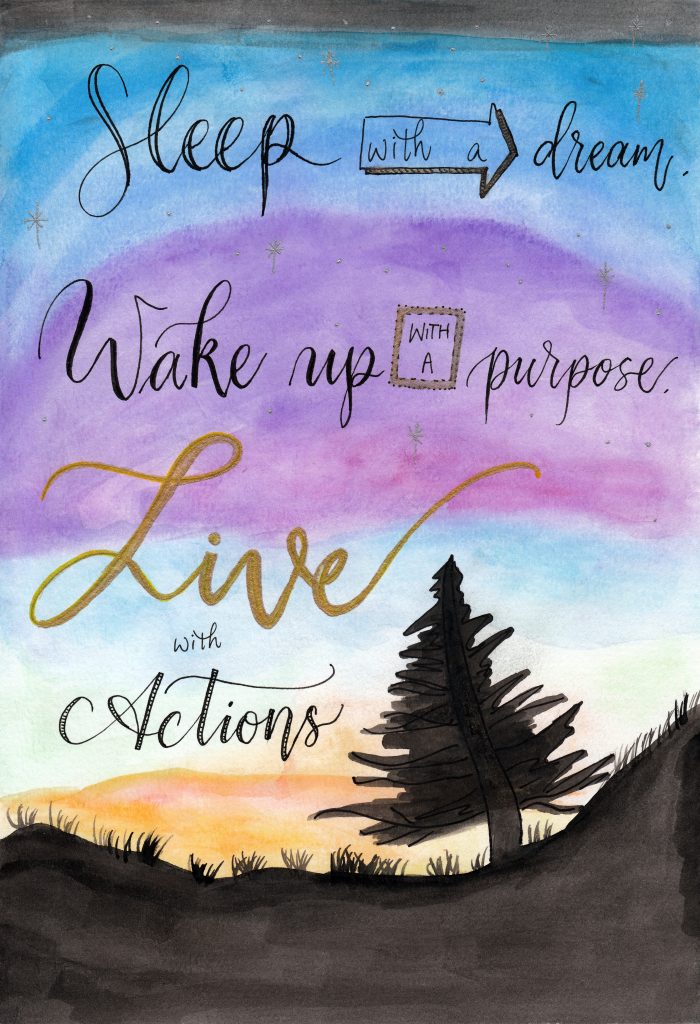 Sleep with a dream.
Wake up WITH A purpose.
Live
with
Actions